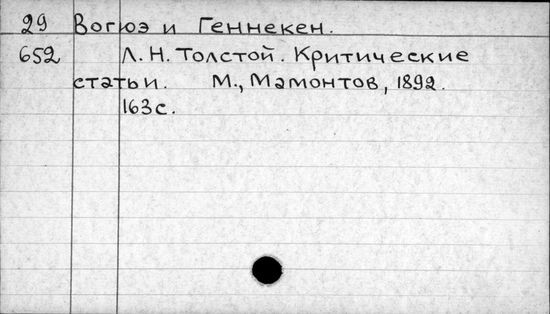 29 Вогюэ и Геннекен.
652 Л. Н. Толстой. Критические
статьи. М., Мамонтов, 1892.
163 с.